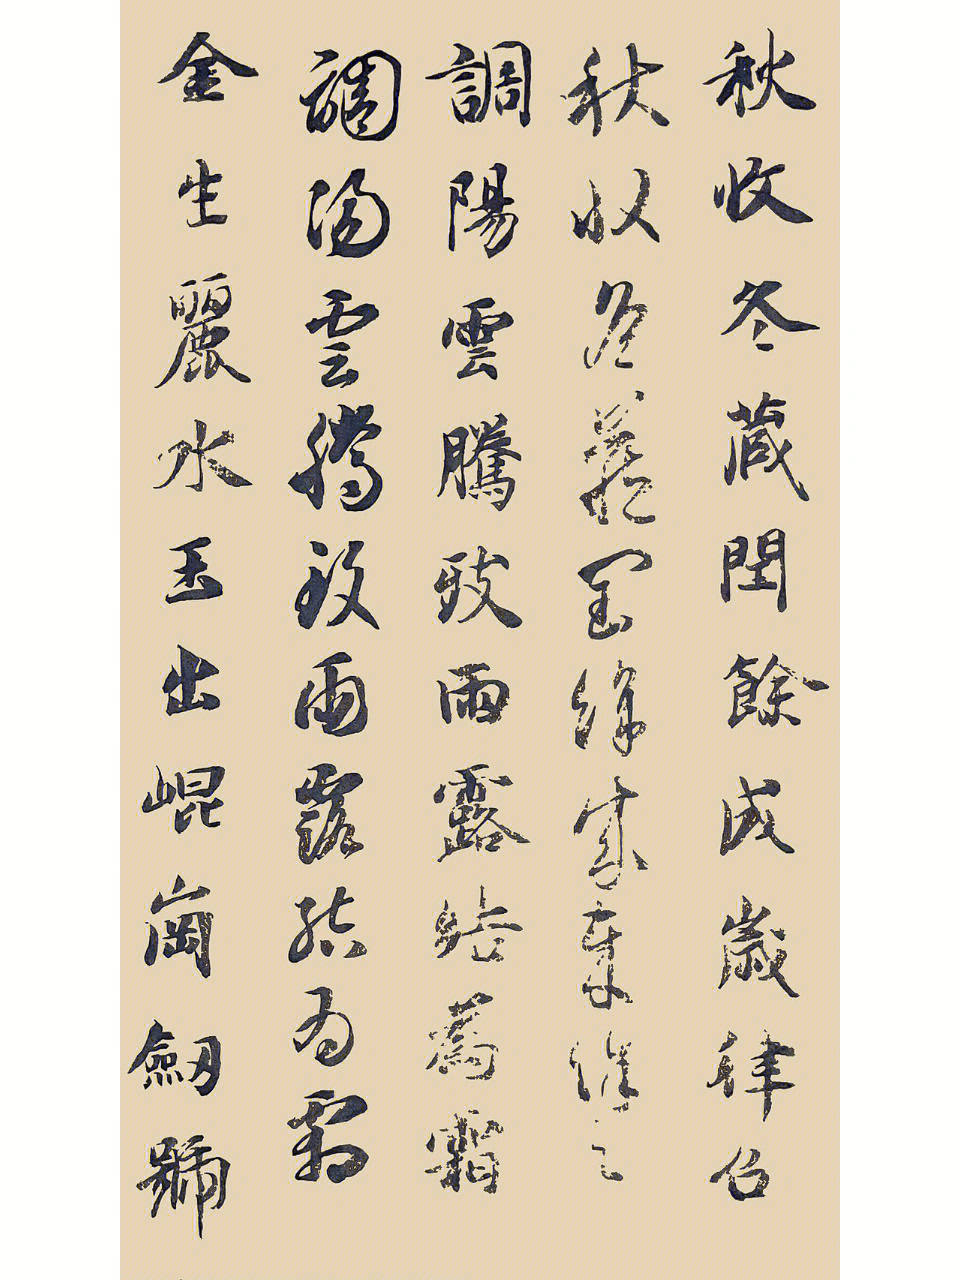 秋收冬蔵閏餘成歲律召
秋收冬藏閏餘成歲律召
調陽雲騰致雨露結爲霜
調陽雲騰致雨露結爲霜
金生麗水玉出崐崗劒號